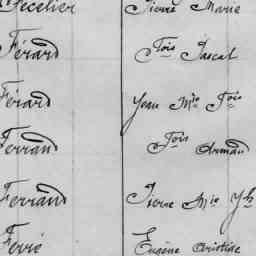 Fecelier Pierre Marie
Férard Fois Pascal
Férard Jean Mie Fois
Ferrand Fois Armand
Ferrand Pierre Mie Jh
Ferré Eugène Aristide